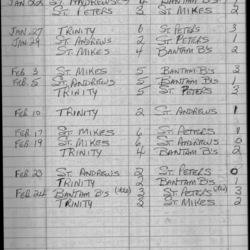 JAN 22 ST. ANDREWS 4 BANTAM B's 2
ST. PETERS 3 ST. MIKES 2
JAN 27 TRINITY 6 ST. PETERS 3
JAN 29 ST. ANDREWS 2 ST. PETERS 1
ST. MIKES 4 BANTAM B's 1
FEB. 3 ST. MIKES 5 BANTAM B's 2
FEB. 5 ST. ANDREWS 5 ST. MIKES 1
TRINITY 5 ST. PETERS 3
FEB 10 TRINITY 2 ST. ANDREWS 1
FEB. 17 ST. MIKES 6 ST. PETERS 1
FEB. 19 ST. MIKES 6 ST. ANDREWS 0
TRINITY 4 BANTAM B's 2
FEB 23 ST. ANDREWS 2 ST. PETERS 0
TRINITY 2 BANTAM B's 1
FEB 24 BANTAM B's 3 ST. PETERS 3
TRINITY 3 ST. MIKES 2